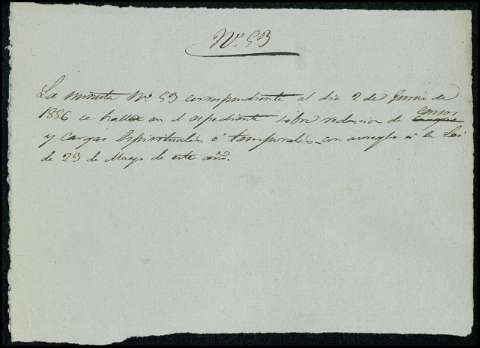 Nº 53
La minuta Nº 53 correspondiente al dia 2 de Junio de
1856 se halla en el espediente sobre redencion de censos
y cargas espirituales ó temporales con arreglo á la Lei
de 23 de Mayo de este año.